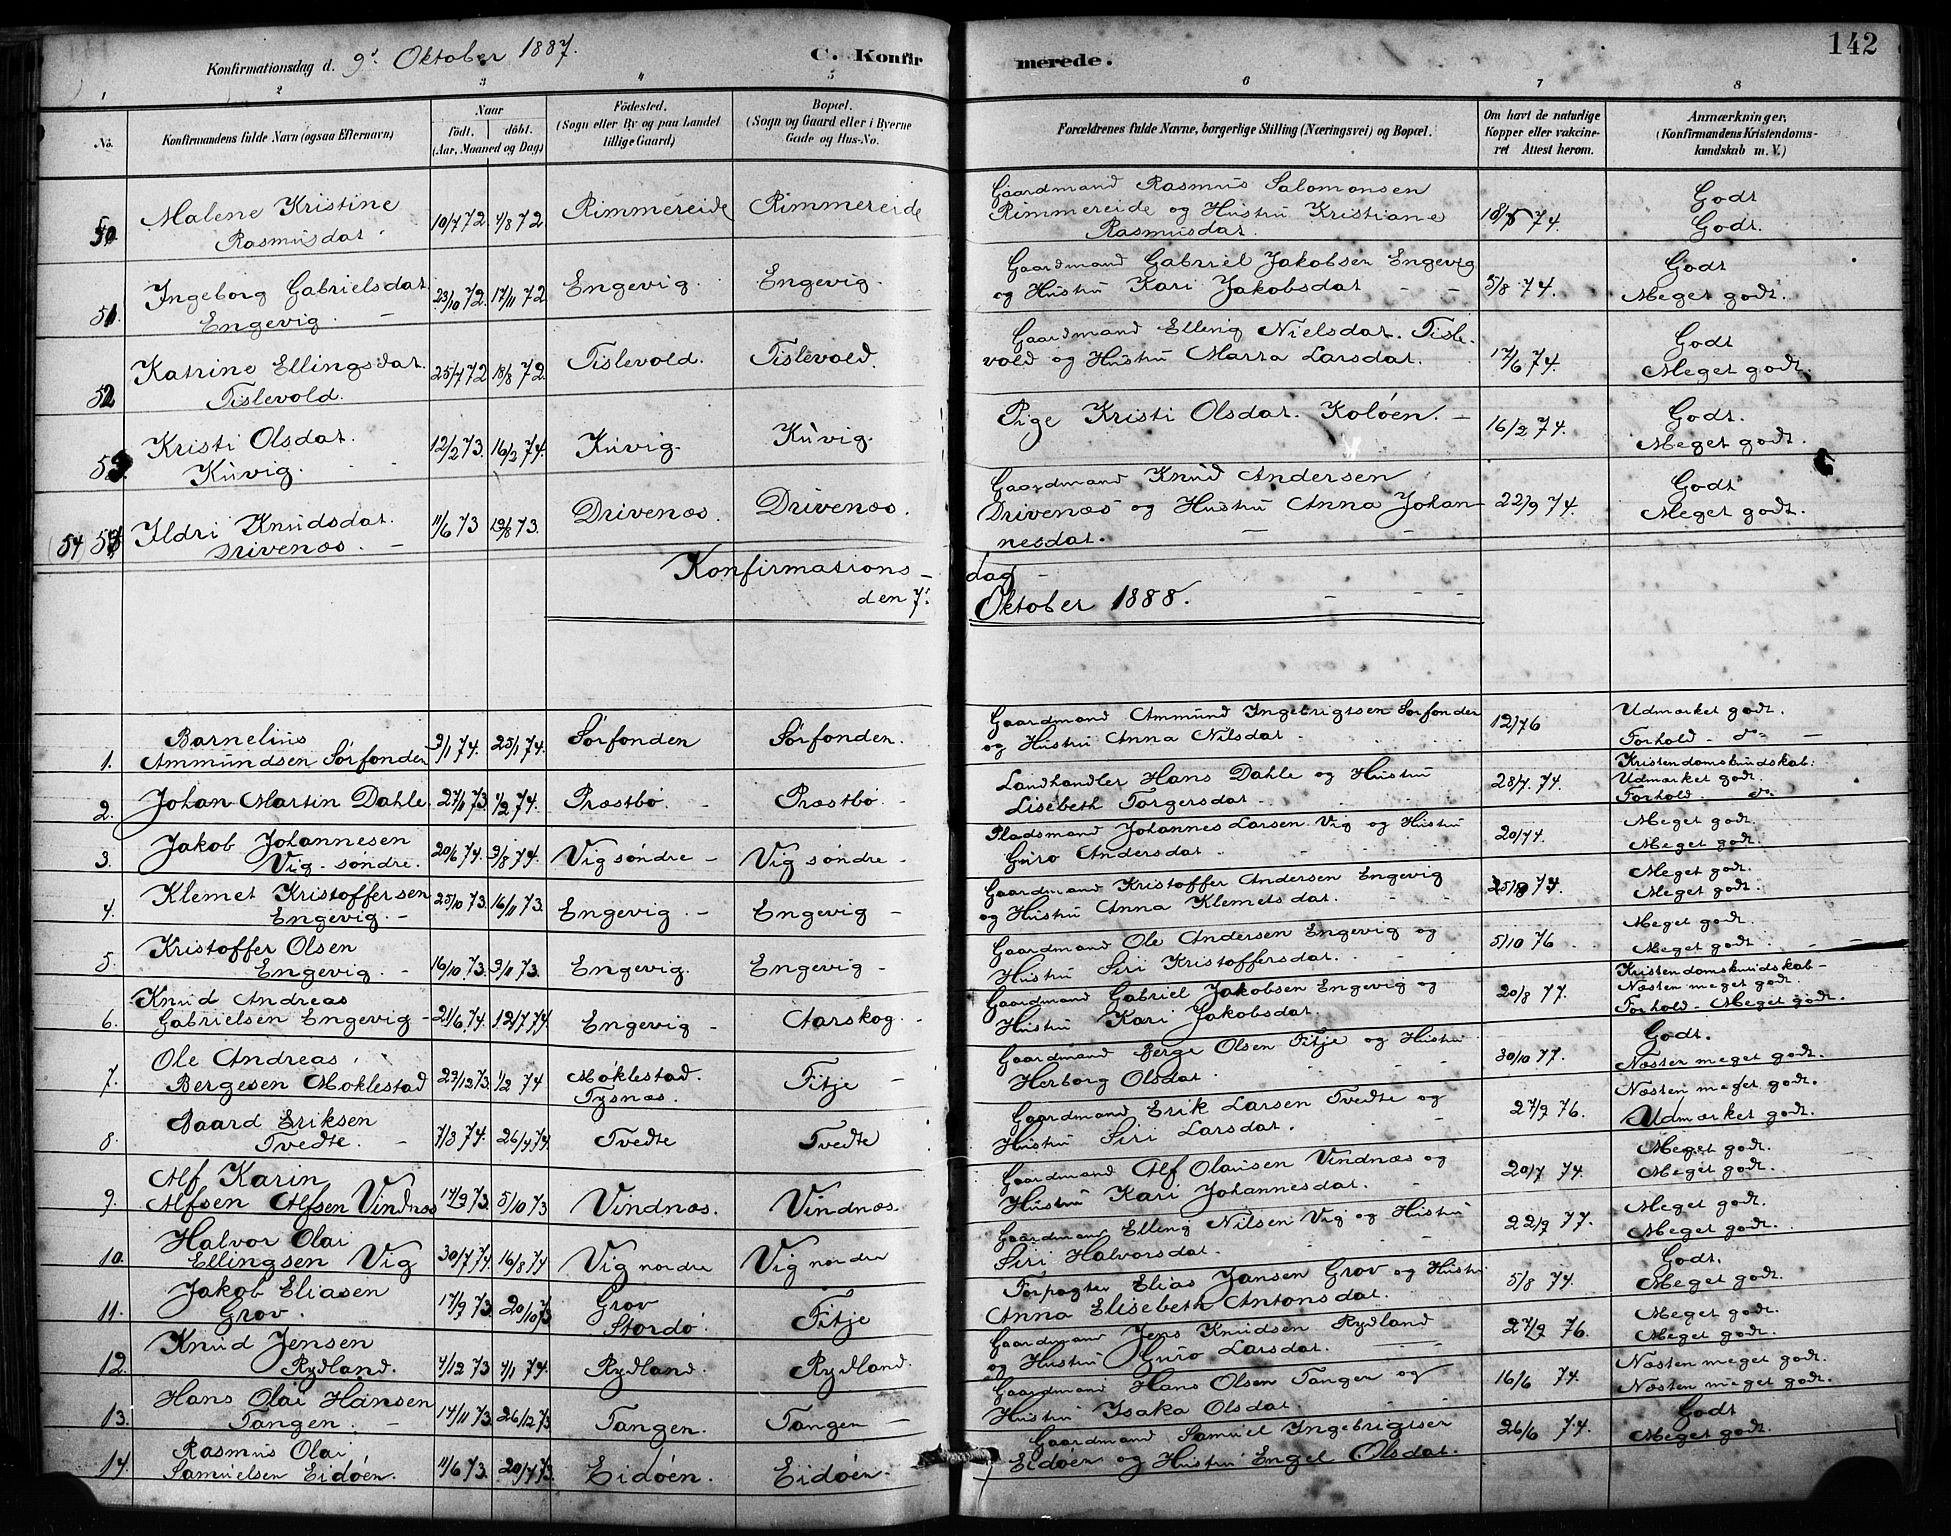 142
Konfirmationsdag d. 9d. Oktober 1887.
C. Konfirmerede.
1 2 3 4 5 6 7 8
No.
Konfirmandens fulde Navn (ogsaa Efternavn)
Naar
födt. döbt.
(Aar, Maaned og Dag)
Födested.
(Sogn eller By og paa Landet
tillige Gaard)
Bopæl.
(Sogn og Gaard eller i Byerne
Gade og Hus-No.
Forældrenes fulde Navne, borgerlige Stilling (Næringsvei) og Bopæl.
Om havt de naturlige
Kopper eller vakcine-
ret Attest herom.
Anmærkninger.
(Konfirmandens Kristendoms-
kundskab m. V.)
50. Malene Kristine Rasmusdat. 10/7 72 4/8 72 Rimmereide Rimmereide
Gaardmand Rasmus Salomonsen
Rimmereide og Hustru Kristiane
Rasmusdat. 74. Godt Godt.
51. Ingeborg Gabrielsdat. Engevig. 23/10 72. 17/11 72 Engevig. Engevig.
Gaardmand Gabriel Jakobsen Engevig
og Hustru Kari Jakobsdat 5/8 74. Godt Meget godt.
52 Katrine Ellingsdat. Tislevold. 25/7 72 18/8 72 Tislevold. Tislevold.
Gaardmand Elling Nielsdat. Tisle-
vold og Hustru Marta Larsdat. 17/6 74. Godt Meget godt.
53. Kristi Olsdat. Kuvig. 12/2 73. 16/2 74. Kuvig. Kuvig.
Pige Kristi Olsdat. Koløen. 16/2 74. Godt. Meget godt.
(54) Ildri Knudsdat. Drivenæs. 11/6 73 73. Drivenæs. Drivenæs.
Gaardmand Knud Andersen
Drivenæs og Hustru Anna Johan-
nesdat. 22/9 74. Godt Meget godt.
Konfirmationsdag
den 7d. Oktober 1888.
1. Barnelius Ammundsen Sørfonden 9/1 74. 25/1 74. Sørfonden Sørfonden.
Gaardmand Ammund Ingebrigtsen Sørfonden
og Hustru Anna Nilsdat. 76 Udmærket godt. Forhold - do
2. Johan Martin Dahle. 27/11 73. 1/2 74. Præstbø. Præstbø.
Landhandler Hans Dahle og Hustru
Lisebeth Torgersdat. 28/7. 74. Kristendomskundskab: Udmærket godt. Forhold. do
3. Jakob Johannesen Vig søndre. 20/6 74. 9/8 74. Vig søndre - Vig søndre -
Pladsmand Johannes Larsen Vig og Hustru
Guro Andersdat. 74. Meget godt. Meget godt.
4. Klemet Kristoffersen Engevig. 25/10 73. 16/11 73. Engevig. Engevig
Gaardmand Kristoffer Andersen Engevig
og Hustru Anna Klemetsdat. 74. Meget godt. Meget godt.
5. Kristoffer Olsen Engevig. 16/10 73. 9/11 73. Engevig. Engevig
Gaardmand Ole Andersen Engevig og
Hustru Siri Kristoffersdat. 5/10 76 Meget godt. Meget godt.
6. Knud Andreas Gabrielsen Engevig 21/6 74. 12/7 74 Engevig Aarskog.
Gaardmand Gabriel Jakobsen Engevig og
Hustru Kari Jakobsdat. 20/8 77. Kristendomskundskab - Næsten meget godt. Forhold - Meget godt.
7. Ole Andreas Bergesen Møklestad 29/12 73. 1/2 74 Møklestad. Tysnæs. Fitje
Gaardmand Berge Olsen Fitje og Hustru
Herborg Olsdat. 30/10 77. Godt. Næsten meget godt.
8. Baard Eriksen Tvedte. 7/3 74. 26/4 74. Tvedte Tvedte
Gaardmand Erik Larsen Tvedte og
Hustru Siri Larsdat. 27/9 76. Næsten meget godt. Udmærket godt.
9. Alf Karin Alfsen Alfsen Vindnæs 14/9 73. 5/10 73 Vindnæs. Vindnæs
Gaardmand Alf Olausen Vindnæs og
Hustru Kari Johannesdat. 20/7 74. Meget godt. Meget godt.
10. Halvor Olai Ellingsen Vig 30/7 74. 16/8 74 Vig nordre Vig nordre
Gaardmand Elling Nilsen Vig og Hustru
Siri Halvorsdat. 22/9 77. Meget godt. Meget godt.
11. Jakob Eliasen Grov. 17/9 73. 20/10 73 Grov Stordø. Fitje
Forpagter Elias Jansen Grov og Hustru
Anna Elisebeth Antonsdat. 5/8 74. Godt. Meget godt.
12. Knud Jensen Rydland. 4/12 73 4/1 74. Rydland. Rydland.
Gaardmand Jens Knudsen Rydland
og Hustru Guro Larsdat. 27/9 76. Meget godt. Meget godt.
13. Hans Olai Hansen Tangen. 14/11 73. 26/12 73. Tangen. Tangen
Gaardmand Hans Olsen Tangen og
Hustru Isaka Olsdat. 16/6 74. Næsten meget godt. Næsten meget godt.
14. Rasmus Olai Samuelsen Eidøen. 11/6 73. 20/7 73. Eidøen. Eidøen.
Gaardmand Samuel Ingebrigtsen
Eidøen og Hustru Engel Olsdat. 26/6 74. Godt Meget godt.